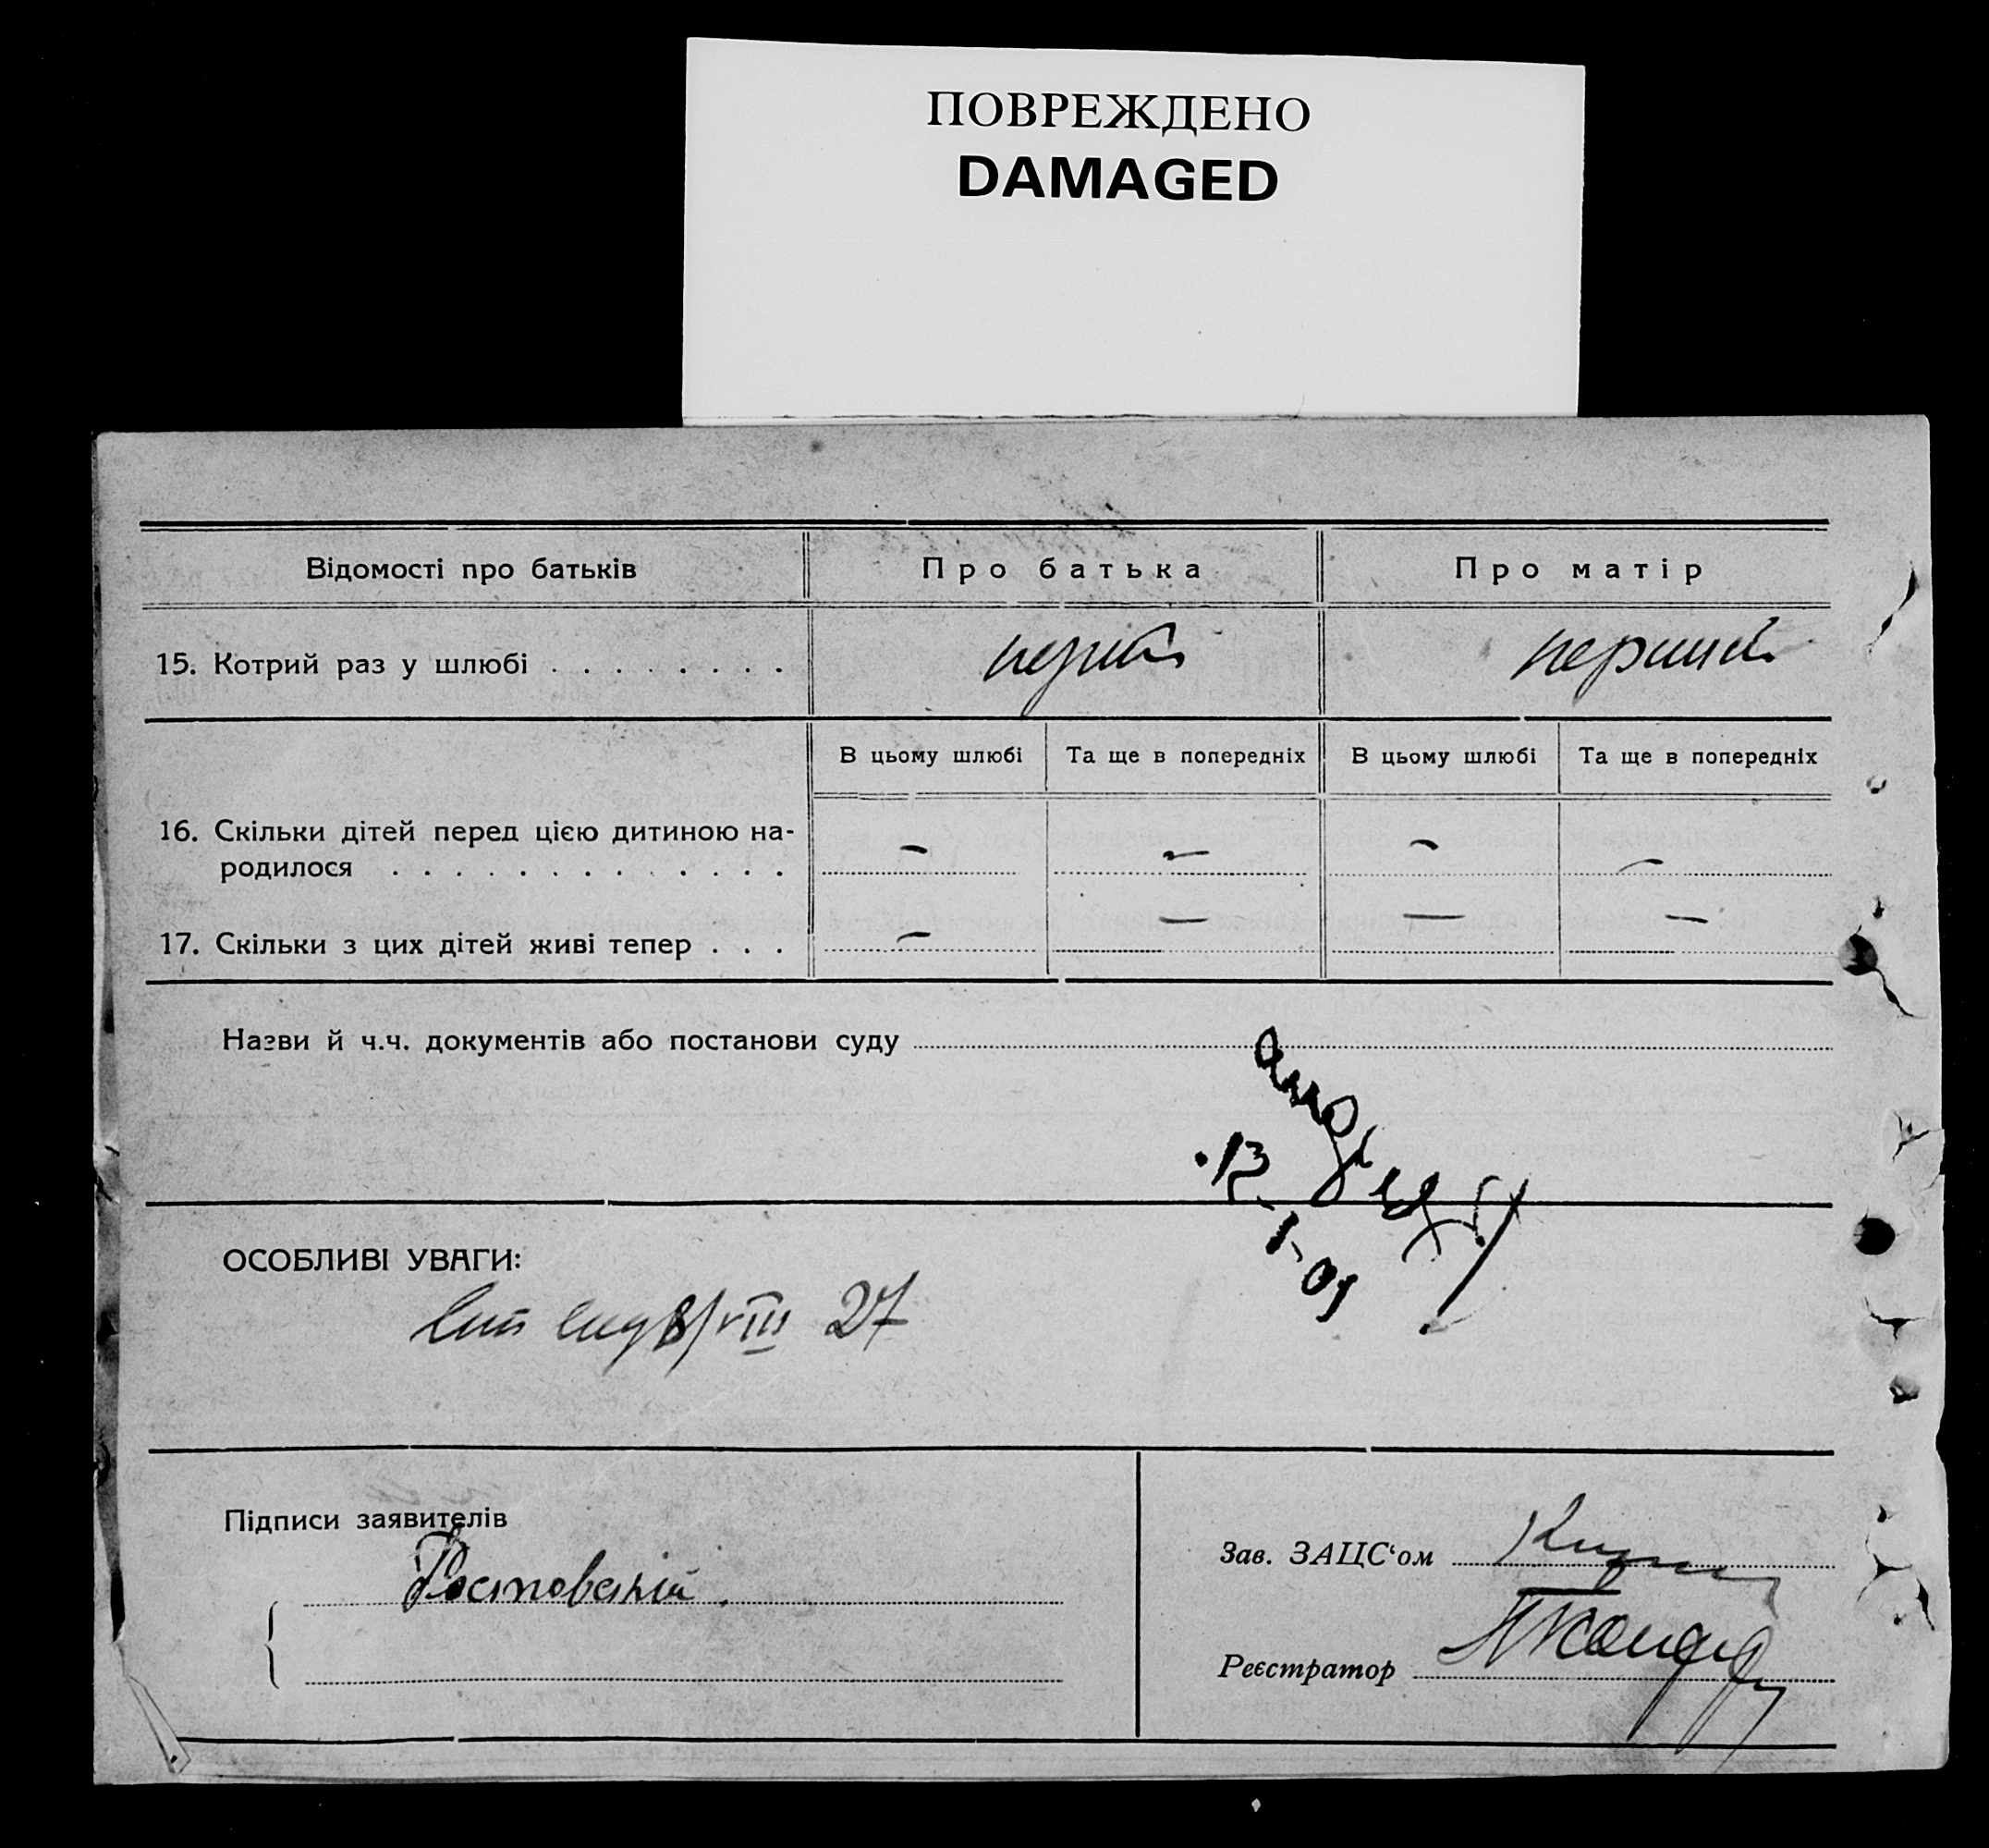 ПОВРЕЖДЕНО
DAMAGED
Відомості про батьків
Про батька
Про матір
15. Котрий раз у шлюбі . . . . . . . .
перший
В цьому шлюбі
Та ще в попередніх
В цьому шлюбі
Та ще в попередніх
16. Скільки дітей перед цією дитиною на-
родилося . . . . . . . . . . . . .
–
–
–
–
17. Скільки з цих дітей живі тепер . . .
–
–
–
–
Назви й ч.ч. документів або постанови суду
ОСОБЛИВІ УВАГИ:
8/VIII 27
Підписи заявителів
Ростовский.
Зав. ЗАЦС‘ом
Реєстратор